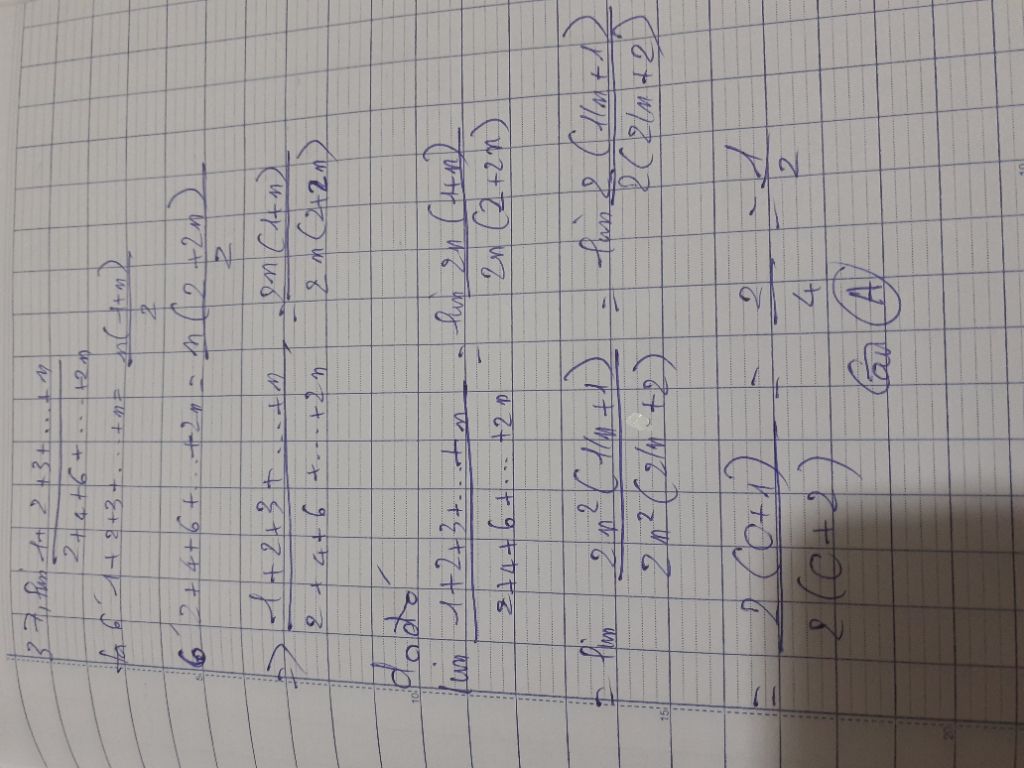 37, lim 1+2+3+...+n / 2+4+6+...+2n
Ta có 1+2+3+...+n= n(1+n)/2
có 2+4+6+...+2n= n(2+2n)/2
=) 1+2+3+...+n / 2+4+6+...+2n = 2n(1+n) / 2n(2+2n)
Do đó
lim 1+2+3+...+n / 2+4+6+...+2n = lim 2n(1+n) / 2n(2+2n)
= lim 2n²(1/n+1) / 2n²(2/n+2) = lim 2(1/n+1) / 2(2/n+2)
= 2(0+1) / 2(0+2) = 2/4 = 1/2
Câu A
5
10
15
20